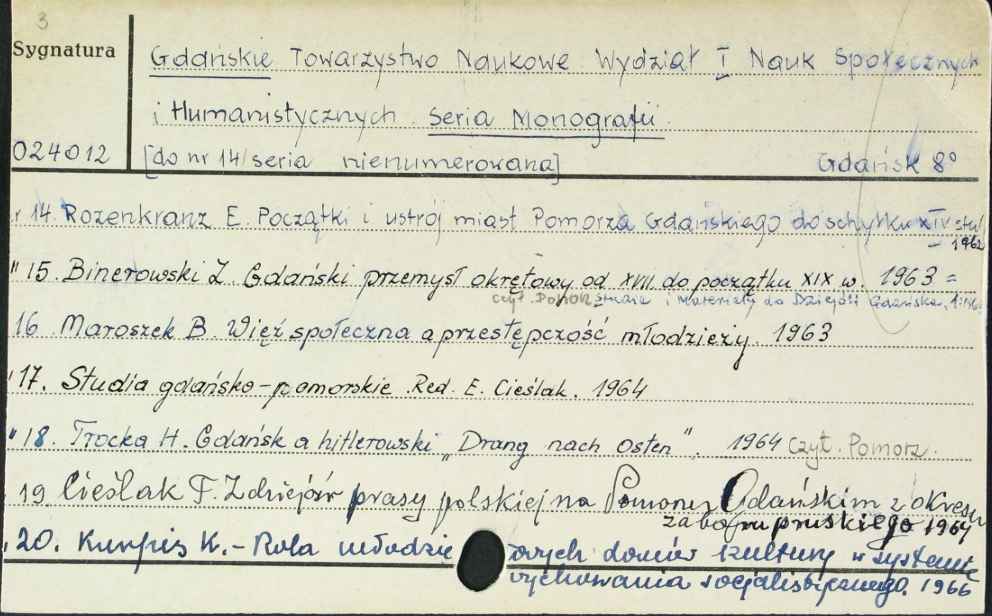 3
Sygnatura
Gdańskie Towarzystwo Naukowe Wydział I Nauk Społecznych
i Humanistycznych. Seria Monografii
024012 [do nr 14/seria nienumerowana] Gdańsk 8°
14. Rozenkranz E. Początki i ustrój miast Pomorza Gdańskiego do schyłku XIV stul.
1962
" 15. Binerowski Z. Gdański przemysł okrętowy od XVII do początku XIX w. 1963 =
czyt. Pomorz. Studia i Materiały do Dziejów Gdańska,
16. Maroszek B. Więź społeczna a przestępczość młodzieży. 1963
" 17. Studia gdańsko-pomorskie. Red. E. Cieślak. 1964
" 18. Trocka H. Gdańsk a hitlerowski „Drang nach Osten". 1964 Czyt. Pomorz.
19 Cieślak F. Z dziejów prasy polskiej na Pomorzu Gdańskim z okresu
zaboru pruskiego 1964
" 20. K. - Rola młodzie owych domów kultury w systemie
wychowania socjalistycznego. 1966